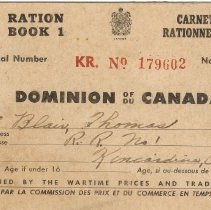 RATION CARNE
BOOK 1 RATIONNE
al Number KR. No 179602
DOMINION OF DU CANADA
Blair, Thomas
ess R. R. No 1
esse Kincardine,
Age if under 16 Age, si au-dessous de
ED BY THE WARTIME PRICES AND TRAD
PAR LA COMMISSION DES PRIX ET DU COMMERCE EN TEMPS